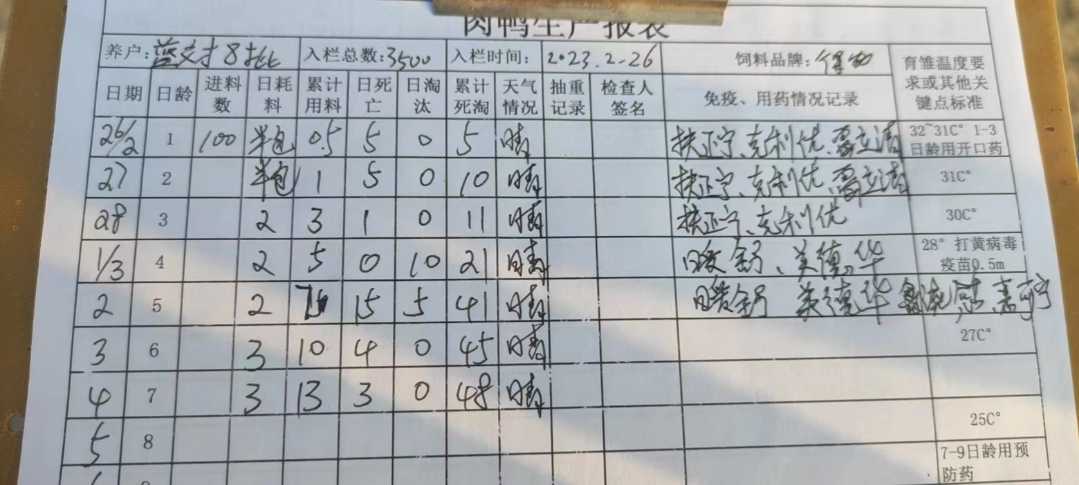 肉鸭生产报表
养户: 8批 入栏总数:3500 入栏时间: 2023.2-26 饲料品牌: 育雏温度要求或其他关键点标准
日期 日龄 进料数 日耗料 累计用料 日死亡 日淘汰 累计死淘 天气情况 抽重记录 检查人签名 免疫、用药情况记录
26/2 1 100 半包 0.5 5 0 5 晴 扶正宁、克利优、 32~31C° 1-3日龄用开口药
27 2 半包 1 5 0 10 晴 扶正宁、克利优、 31C°
28 3 2 3 1 0 11 晴 扶正宁、克利优 30C°
1/3 4 2 5 0 10 21 晴 美德华 28° 打黄病毒疫苗0.5m
2 5 2 15 5 41 晴 美德华
3 6 3 10 4 0 45 晴 27C°
4 7 3 13 3 0 48 晴
5 8 25C°
7-9日龄用预防药